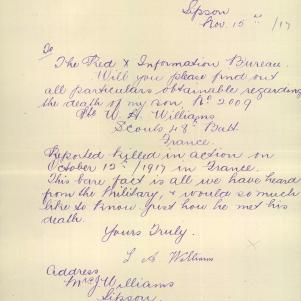 Sipson
Nov. 15th /17
To
The Red X Information Bureau.
Will you please find out
all particulars obtainable regarding
the death of my son, No 2009
Pte W. H. Williams
Scouts 48th Batt.
France.
Reported killed in action on
October 12th 1917 in France.
This bare fact is all we have heard
from the Military, & would so much
like to know just how he met his
death.
Yours Truly.
L A Williams
Address
Mrs J Williams
Sipson